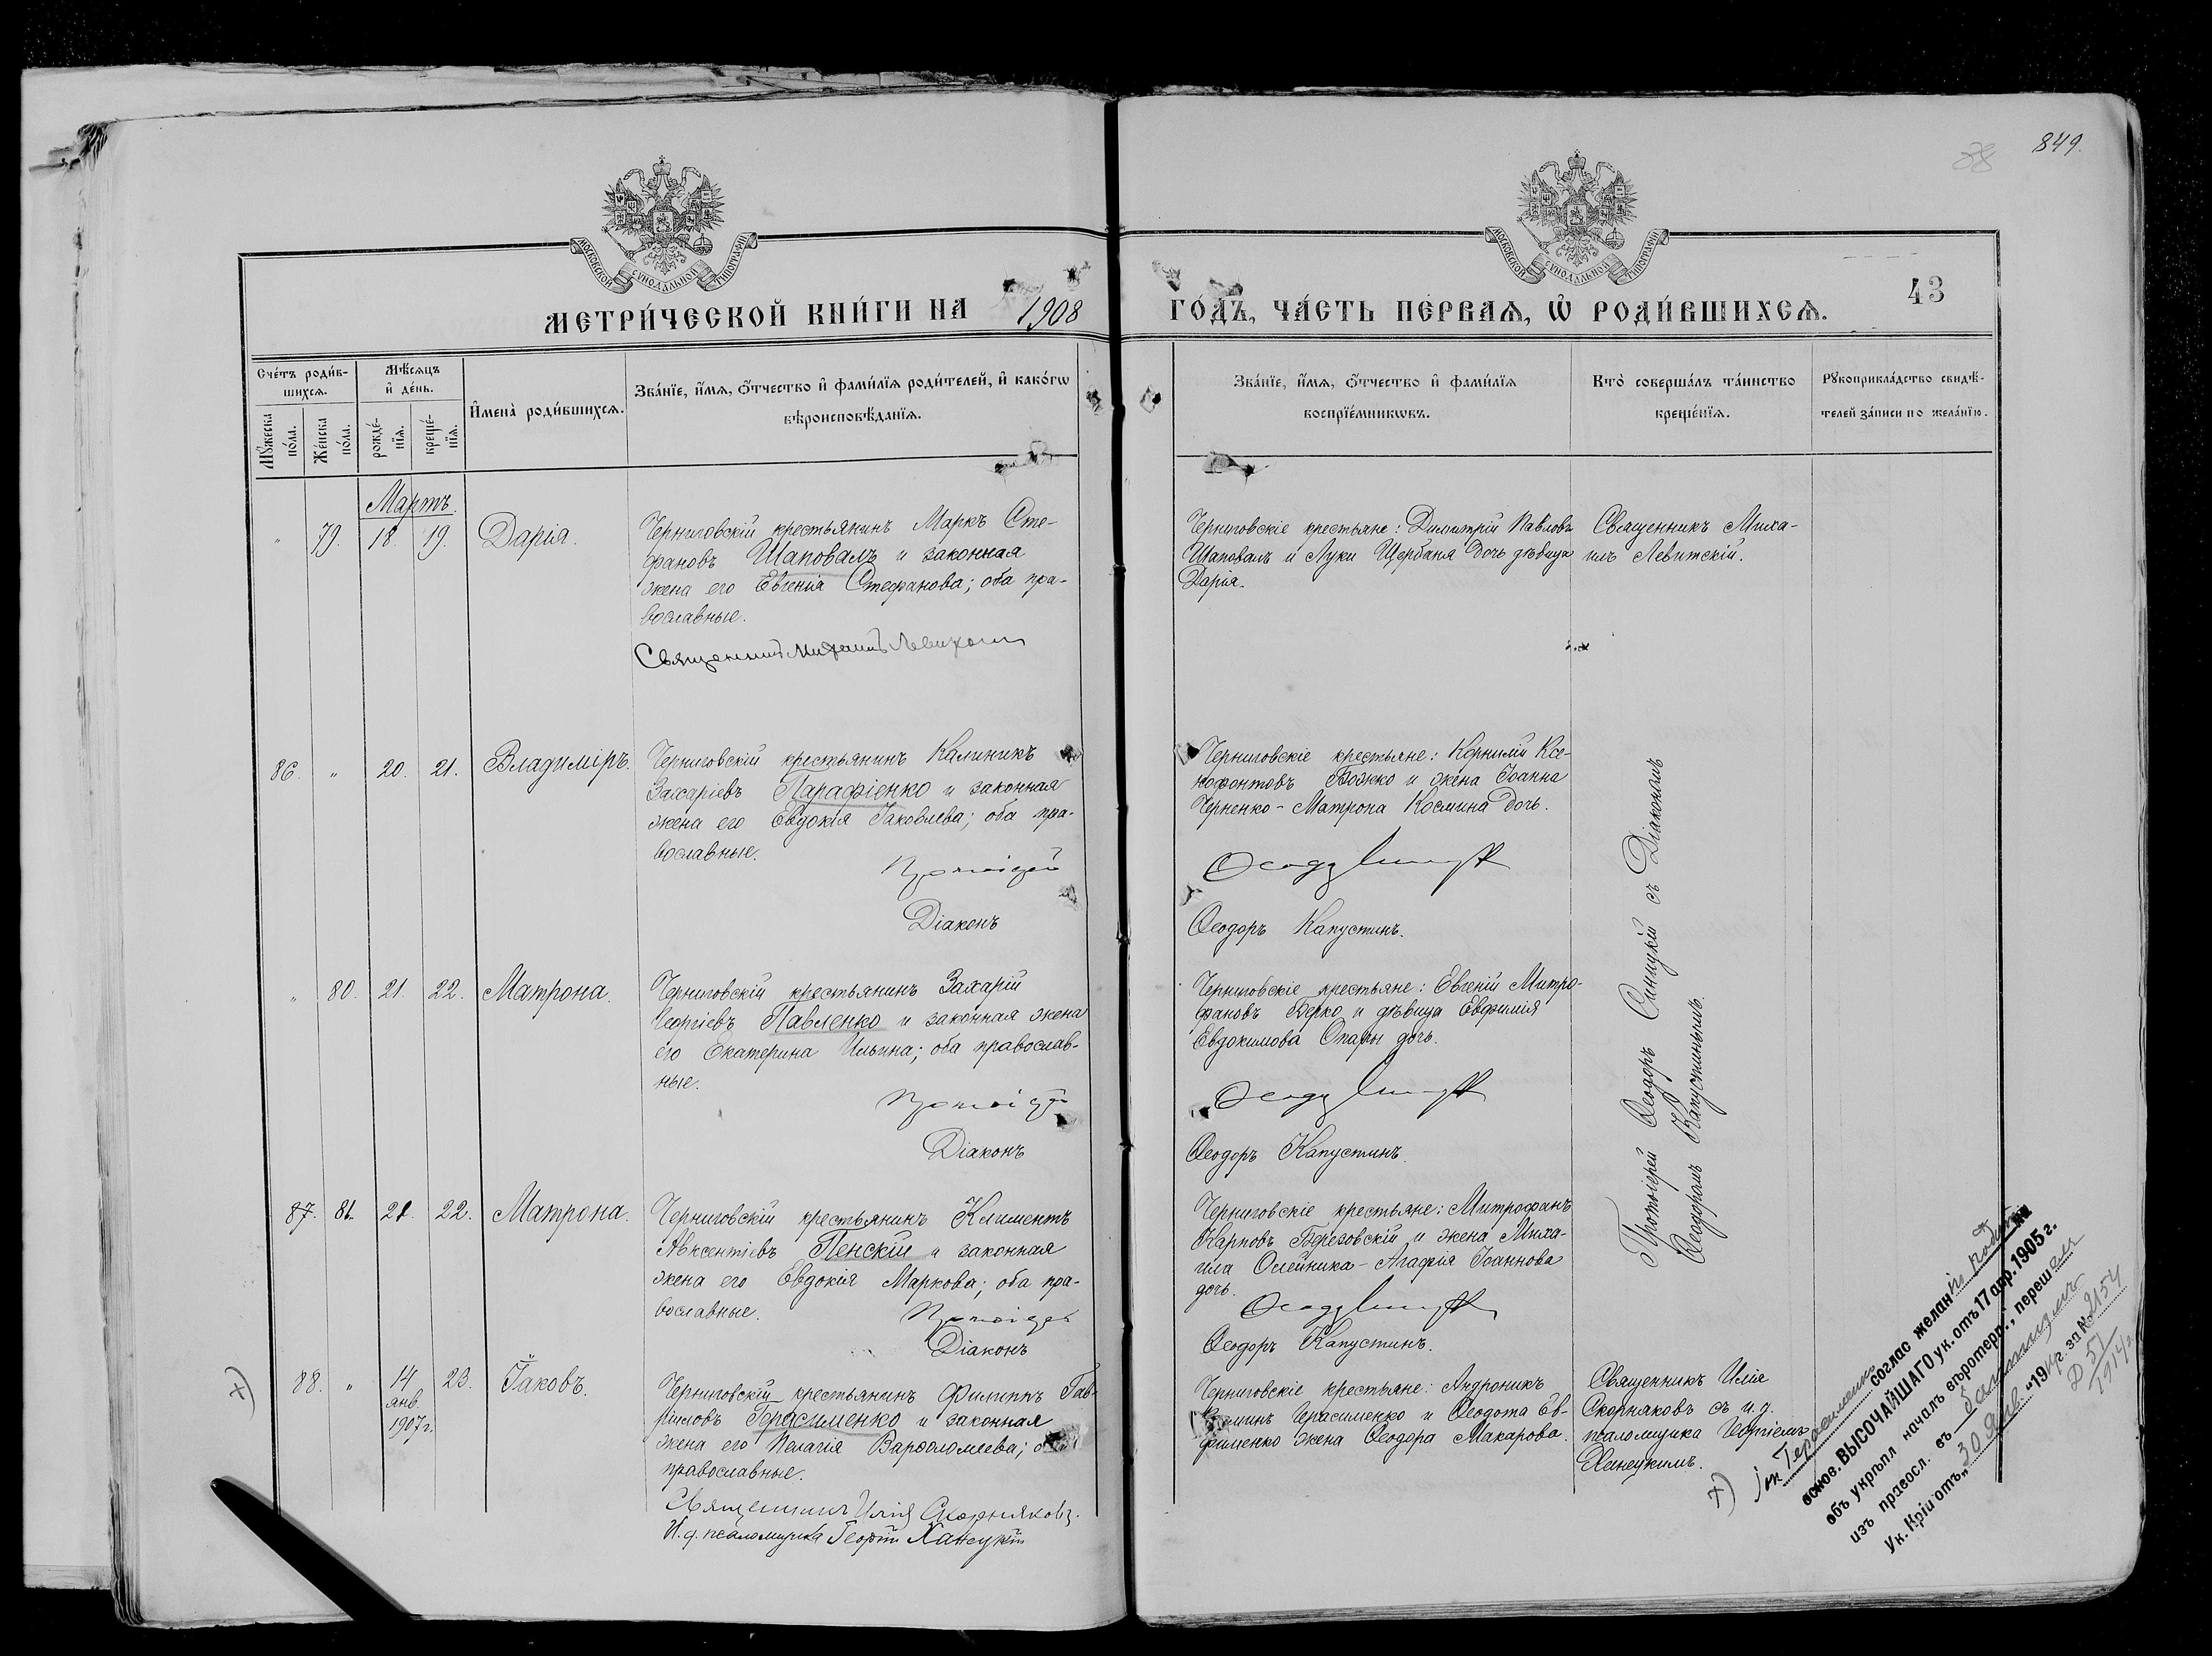 849.
38
МОСКОВСКОЙ СѴНОДАЛЬНОЙ ТИПОГРАФІИ
МОСКОВСКОЙ СѴНОДАЛЬНОЙ ТИПОГРАФІИ
43
МЕТРИ́ЧЕСКОЙ КНИ́ГИ НА 1908 ГО́ДЪ, ЧА́СТЬ ПЕ́РВАѦ, Ѡ҆ РОДИ́ВШИХСѦ.
Сче́тъ роди́в-
шихсѧ.
Мꙋ́жеска по́ла.
Же́нска по́ла.
Мѣ́сѧцъ и҆ де́нь.
рожде́-нїѧ.
креще́-нїѧ.
И҆мена̀ роди́вшихсѧ.
Зва́нїе, и҆́мѧ, ѻ҆́тчество и҆ фами́лїѧ роди́телей, и҆ како́гѡ
вѣроисповѣ́данїѧ.
Зва́нїе, и҆́мѧ, ѻ҆́тчество и҆ фами́лїѧ
воспрїе́мникѡвъ.
Кто̀ соверша́лъ та́инство
креще́нїѧ.
Рꙋкоприкла́дство свидѣ́-
телей за́писи по жела́нїю.
Мартъ.
" 79. 18. 19. Дарія.
Черниговскій крестьянинъ Маркъ Сте-
фановъ Шаповалъ и законная
жена его Евгенія Стефанова; оба пра-
вославные.
Священникъ Михаилъ Левитскій
Черниговскіе крестьяне: Димитрій Павловъ
Шаповалъ и Луки Щербаня дочь дѣвица
Дарія.
Священникъ Миха-
илъ Левитскій.
86. " 20. 21. Владиміръ.
Черниговскій крестьянинъ Калиникъ
Захаріевъ Парафіенко и законная
жена его Евдокія Іаковлева; оба пра-
вославные.
Протоіерей
Діаконъ
Черниговскіе крестьяне: Корнилій Ксе-
нофонтовъ Божко и жена Іоанна
Черненко - Матрона Космина дочь.
Ѳеодоръ Капустинъ.
" 80. 21. 22. Матрона.
Черниговскій крестьянинъ Захарій
Георгіевъ Павленко и законная жена
его Екатерина Ильина; оба православ-
ные.
Протоіерей
Діаконъ
Черниговскіе крестьяне: Евгеній Митро-
фановъ Берко и дѣвица Евфимія
Евдокимова Опары дочь.
Ѳеодоръ Капустинъ.
87. 81. 21. 22. Матрона.
Черниговскій крестьянинъ Климентъ
Авксентіевъ Пенскій и законная
жена его Евдокія Маркова; оба пра-
вославные.
Протоіерей
Діаконъ
Черниговскіе крестьяне: Митрофанъ
Карповъ Березовскій и жена Миха-
ила Олейника - Агафія Іоаннова
дочь.
Ѳеодоръ Капустинъ.
Протоіерей Ѳеодоръ Синицкій съ Діакономъ
Ѳеодоромъ Капустинымъ.
+) 88. " 14 янв. 1907 г. 23. Іаковъ.
Черниговскій крестьянинъ Филиппъ Гав-
ріиловъ Герасименко и законная
жена его Пелагія Варѳоломеева; оба
православные.
Священникъ Илія Скорняковъ.
И. д. псаломщика Георгій Ханецкій
Черниговскіе крестьяне: Андроникъ
Герасименко и Ѳеодота Ев-
фименко жена Ѳеодора Макарова.
Священникъ Илія
Скорняковъ съ и. д.
псаломщика Георгіемъ
Ханецкимъ.
+) Герасименко соглас желан
основ. ВЫСОЧАЙШАГО ук. отъ 17 апр. 1905 г.
объ укрѣпл началъ вѣротерп., перешелъ
изъ правосл. въ баптизмъ
Ук. Кріи отъ „30 Янв. "1914 г. за № 2154
Д 51
1914 г.